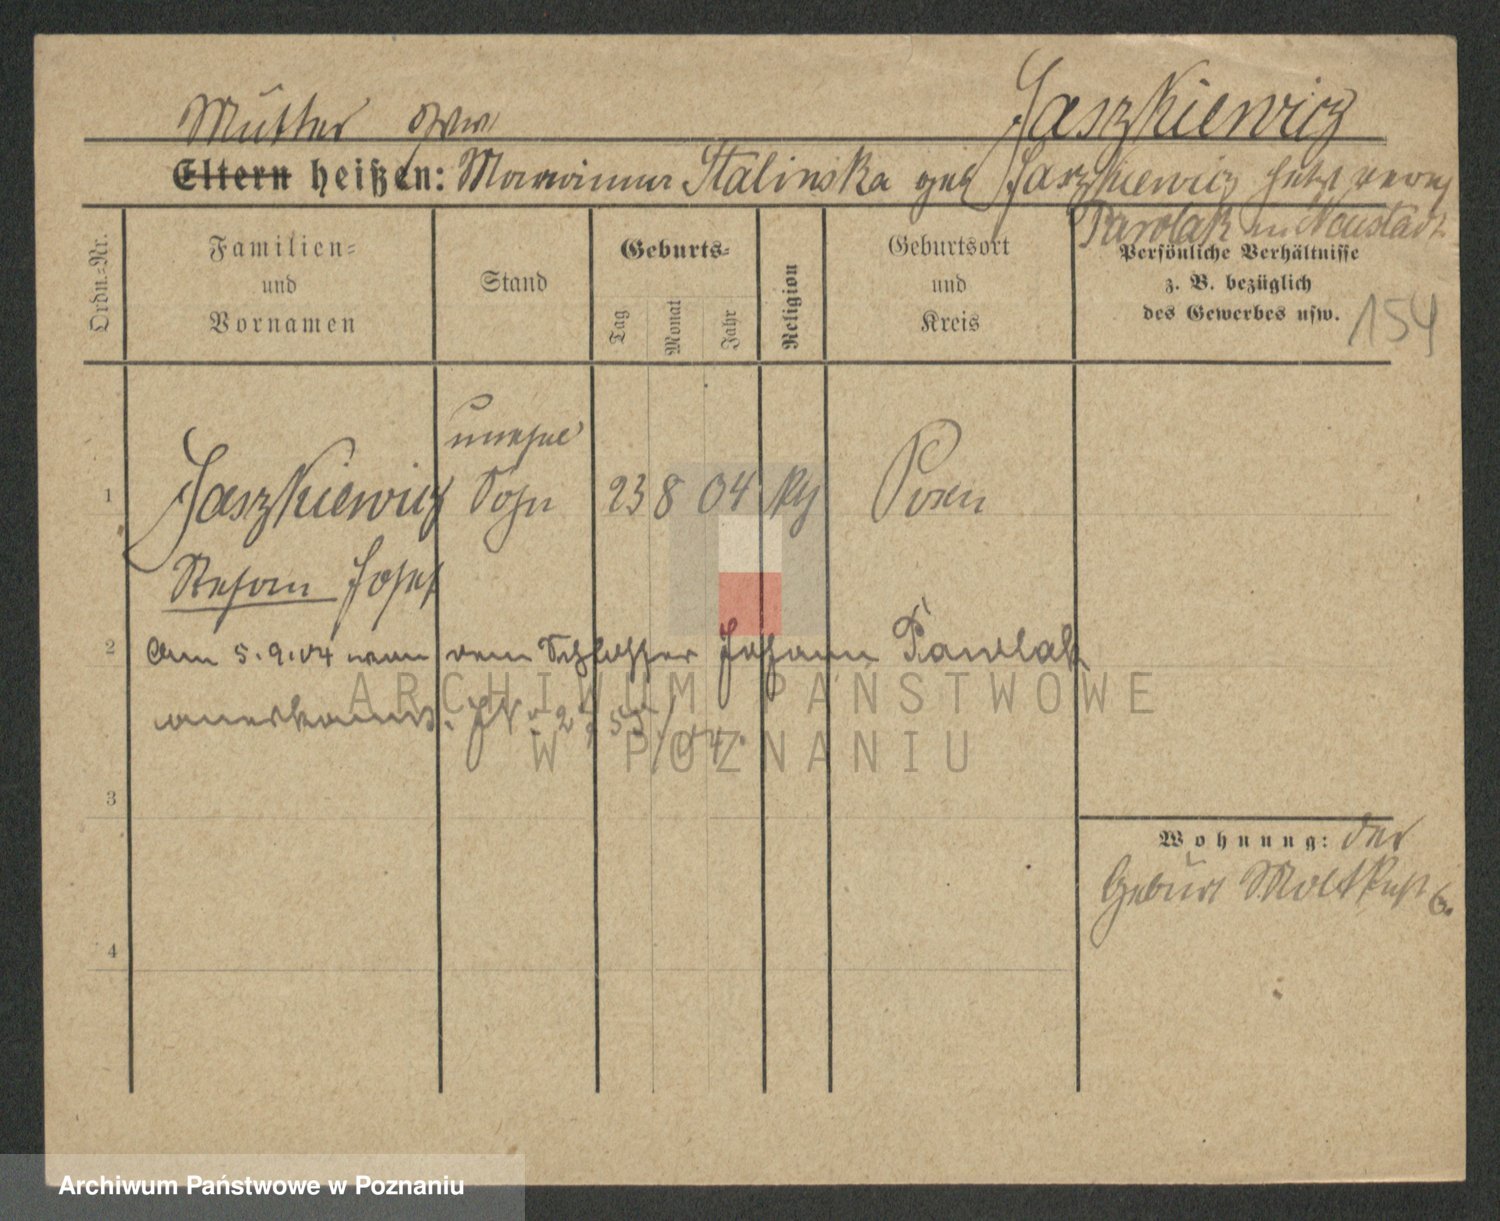 Mutter Ww Jaszkiewicz
Eltern heißen: Marianna Stalinska geb Jaszkiewicz jetzt verehl
Pawlak in Neustadt
Ordn.=Nr.
Familien=
und
Vornamen
Stand
Geburts=
Tag
Monat
Jahr
Religion
Geburtsort
und
Kreis
Persönliche Verhältnisse
z. B. bezüglich
des Gewerbes usw.
154
1 Jaszkiewicz
unehel
Sohn 23 8 04 Posen
Stefan Josef
2 Am 5.9.04 von dem Schlosser Johann Pawlak
anerkannt.
3
4
Wohnung: der
Geburt Moltkestr 6.
ARCHIWUM PAŃSTWOWE
W POZNANIU
Archiwum Państwowe w Poznaniu